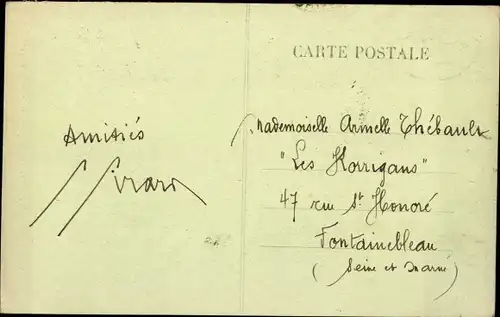 CARTE POSTALE
Amitiés
Mademoiselle Armelle Thébault
"Les Korrigans"
47 rue St Honoré
Fontainebleau
(Seine et Marne)